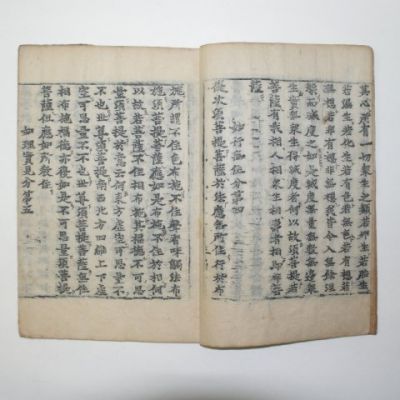 其心所有一切衆生之類若卵生若胎生
若濕生若化生若有色若無色若有想若
無想若非有想非無想我皆令入無餘涅
槃而滅度之如是滅度無量無數無邊衆
生實無衆生得滅度者何以故須菩提若
菩薩有我相人相衆生相壽者相卽非菩
薩
妙行無住分第四
復次須菩提菩薩於法應無所住行於布
施所謂不住色布施不住聲香味觸法布
施須菩提菩薩應如是布施不住於相何
以故若菩薩不住相布施其福德不可思
量須菩提於意云何東方虛空可思量不
不也世尊須菩提南西北方四維上下虛
空可思量不不也世尊須菩提菩薩無住
相布施福德亦復如是不可思量須菩提
菩薩但應如所教住
如理實見分第五